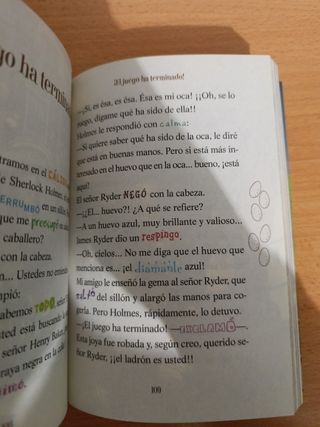 go ha termina
tramos en el CÁL
e Sherlock Holmes, el
ERRUMBÓ en un sillón
que me preocupé
caballero?
con la cabeza.
... Ustedes no
mpió:
abemos TODO
sted está buscando
señor Henry Baker,
raya negra en la co
¡El juego ha terminado!
—¡Sí, es ésa, es ésa. Ésa es mi oca! ¡¡Oh, se lo
ruego, dígame qué ha sido de ella!!
Holmes le respondió con calma:
—Si quiere saber qué ha sido de la oca, le diré
que está en buenas manos. Pero si está más in-
teresado en el huevo que en la oca... bueno, ¡está
aquí!
El señor Ryder NEGÓ con la cabeza.
—¡¿El... huevo?! ¿A qué se refiere?
—A un huevo azul, muy brillante y valioso...
James Ryder dio un respingo.
—Oh, cielos... No me diga que el huevo que
menciona es... ¡el diamante azul!
Mi amigo le enseñó la gema al señor Ryder, que
SALTÓ del sillón y alargó las manos para co-
gerla. Pero Holmes, rápidamente, lo detuvo.
—¡El juego ha terminado! —EXCLAMÓ—.
Esta joya fue robada y, según creo, querido se-
ñor Ryder, ¡¡el ladrón es usted!!
109